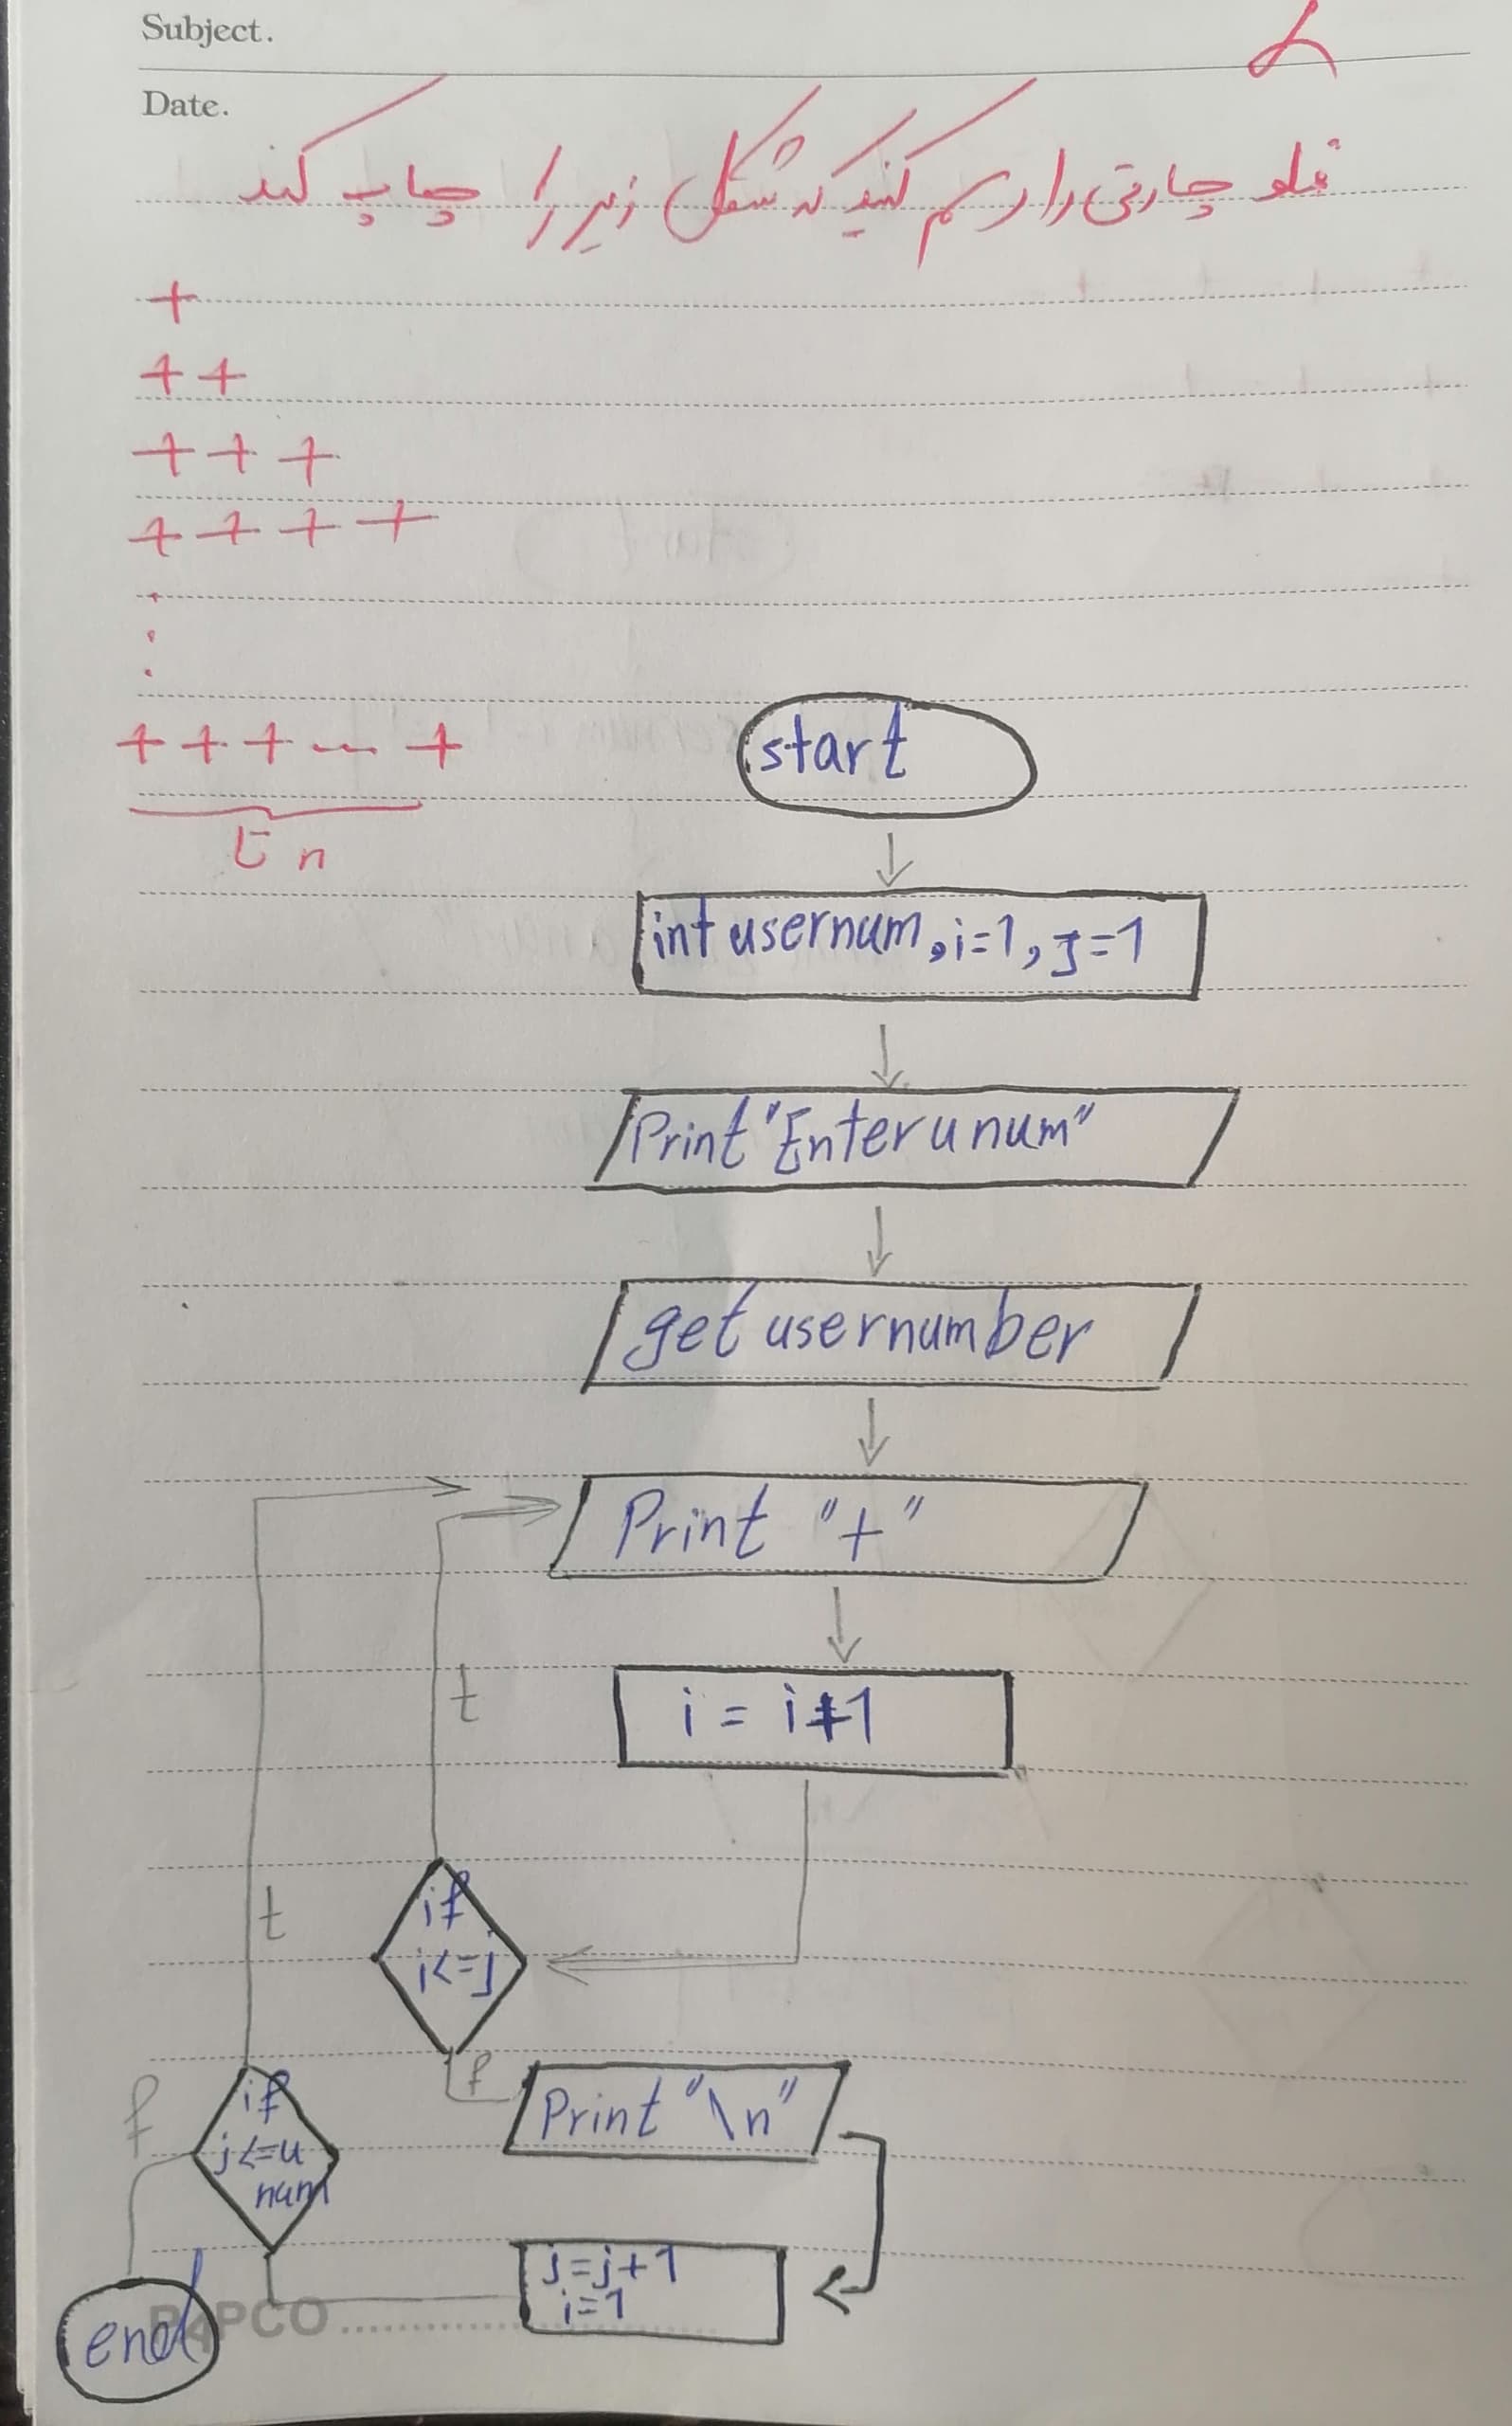 Subject.
Date.
فلو چارتی را رسم کنید که شکل زیر را چاپ کند
+
++
+++
++++
+++...+
n تا
start
int usernum, i=1, j=1
Print "Enter u num"
get usernumber
Print "+"
i = i+1
t
if
i<=j
t
f
Print "\n"
if
j<=u
num
f
j=j+1
i=1
end
PAPCO